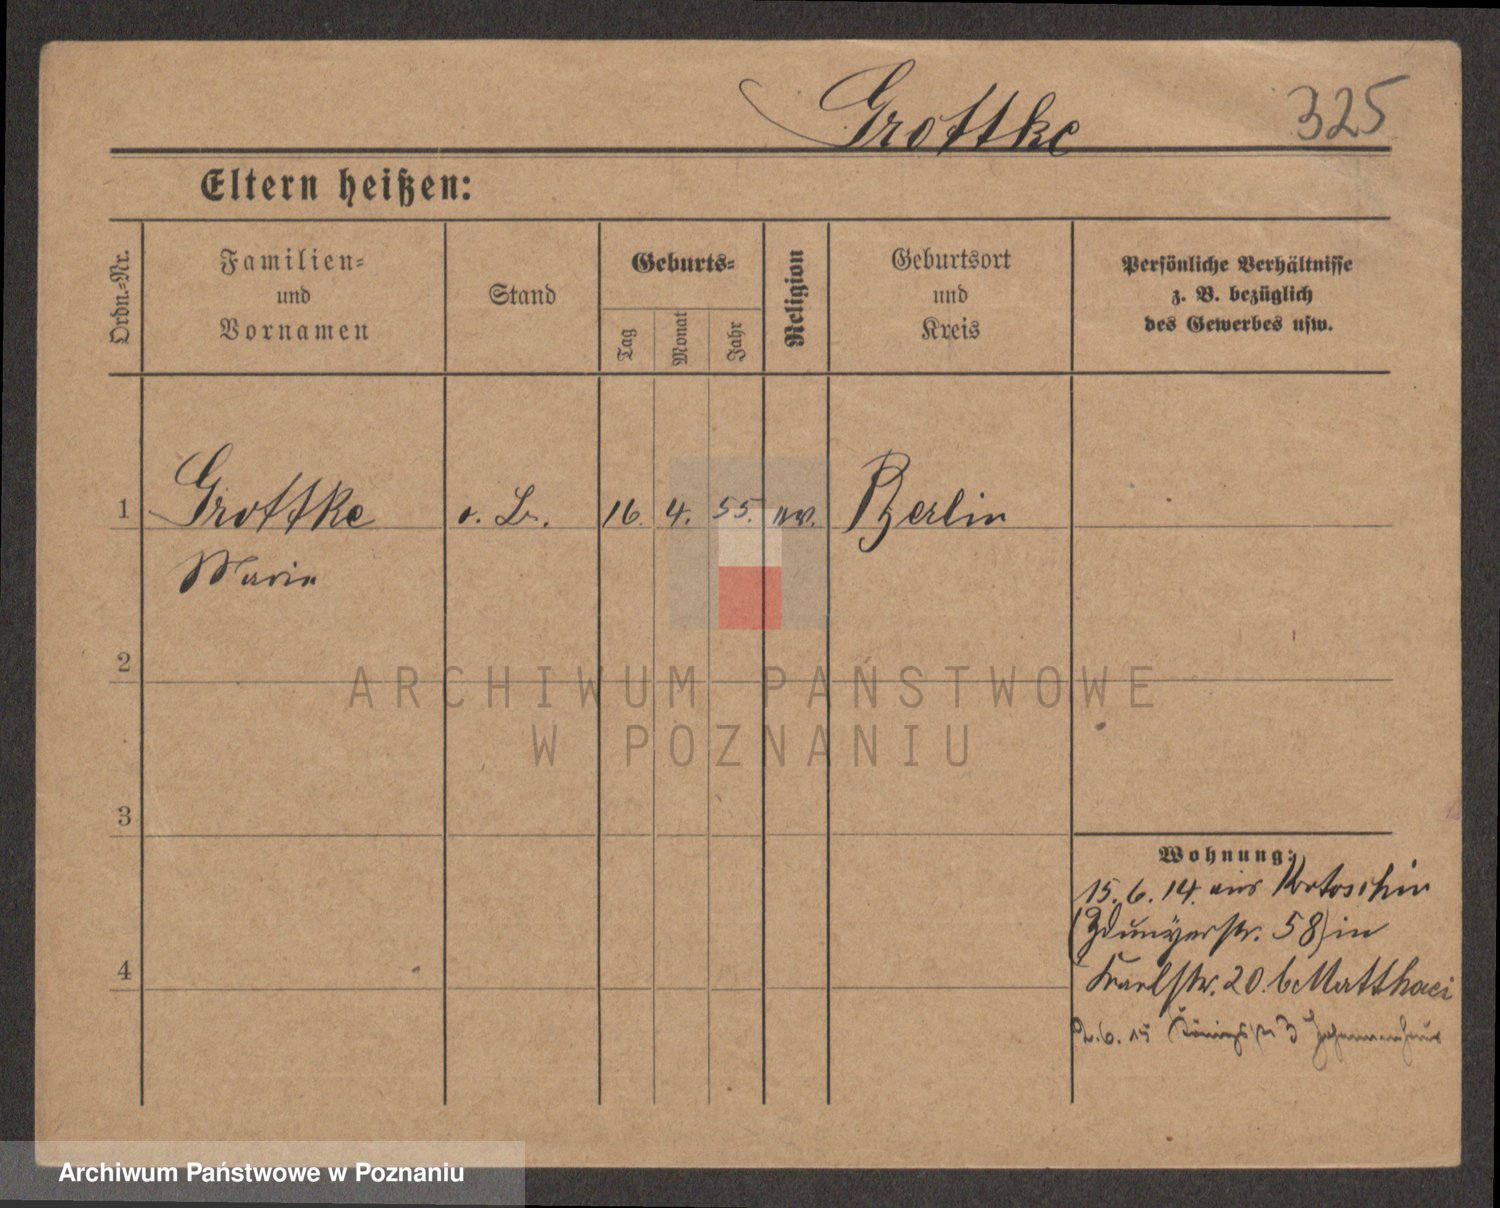 Grottke 325
Eltern heißen:
Ordn.-Nr.
Familien-
und
Vornamen
Stand
Geburts-
Tag
Monat
Jahr
Religion
Geburtsort
und
Kreis
Persönliche Verhältnisse
z. B. bezüglich
des Gewerbes usw.
1 Grottke o. B. 16. 4. 55. ev. Berlin
Marie
2
ARCHIWUM PAŃSTWOWE
W POZNANIU
3
Wohnung:
15. 6. 14. aus Krotoschin
(Zdunyerstr. 58) in
4
Karlstr. 20. b Matthaei
2. 6. 15 Königstr 3
Archiwum Państwowe w Poznaniu